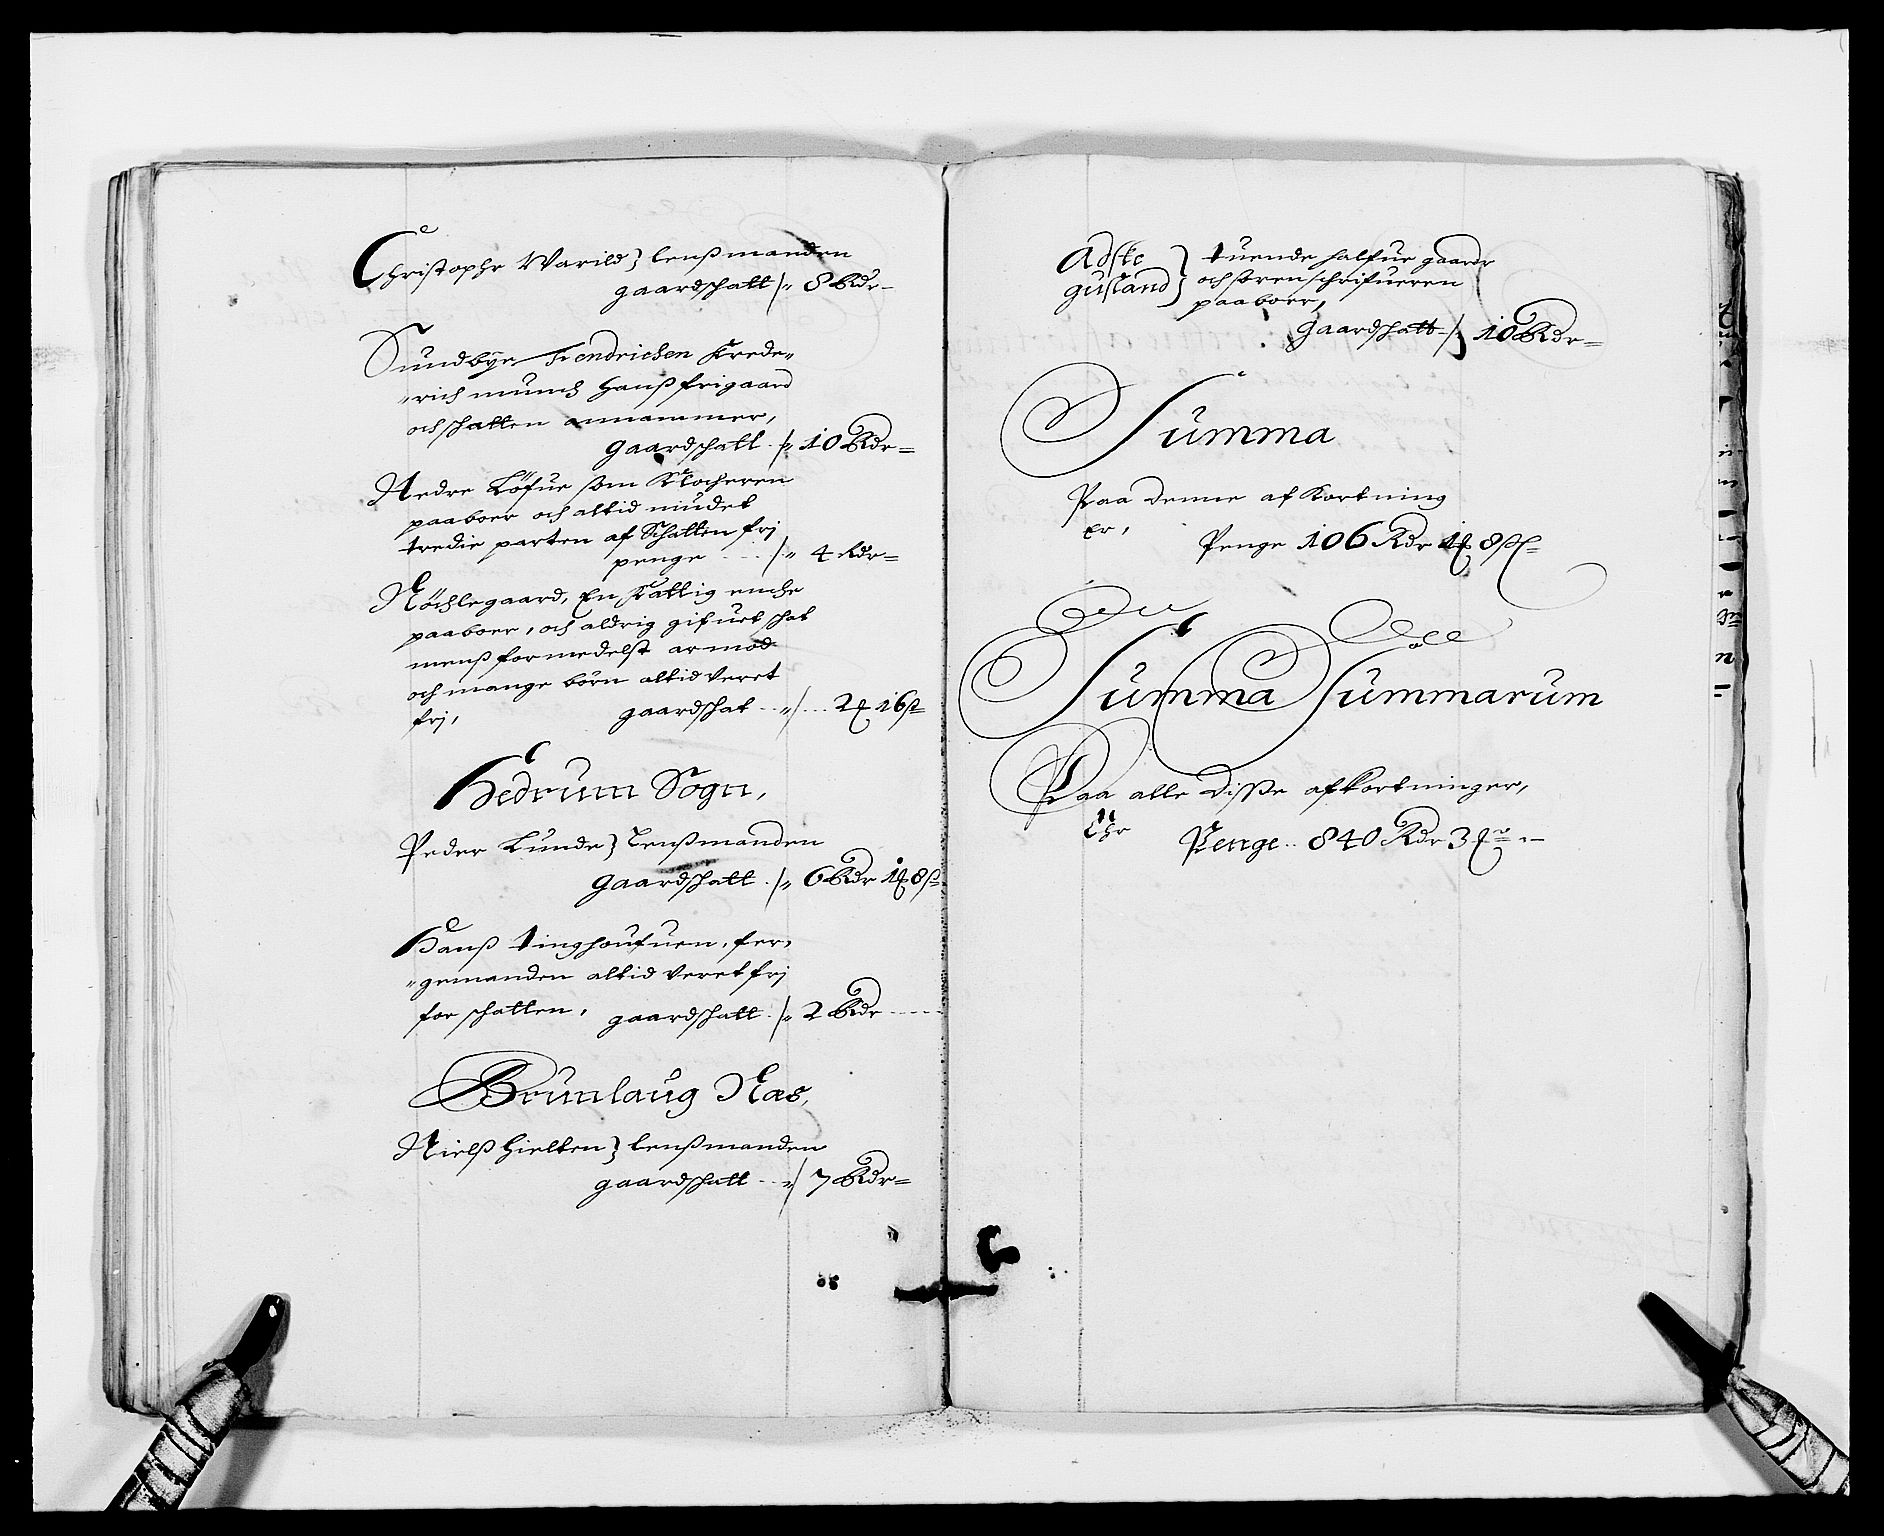 Christopher Warild} lenßmanden
gaardschatt // 8 Rdr -
Sundbÿe Hendrichen Frede-
-rich munch Hanß frigaard
och schatten annammer,
gaardschatt // 10 Rdr =
Nedre Löfue som Klocheren
paaboer och altid niudet
tredie parten af Schatten frj
penge // 4 Rdr =
Nöchlegaard, En fattig enche
paaboer, och aldrig gifuet schat
menß formedelst armod
och mange börn altid veret
frj, gaardschat // 2 16
Hedrum Sogn,
Peder Lunde} Lenßmanden
gaardschatt // 6 Rdr 1 8
Hanß tinghoufuen, fer-
-gemanden altid veret frj
for schatten, gaardschatt // 2 Rdr
Brunlaug Næs,
Nielß Hielten} lenßmanden
gaardschatt // 7 Rdr =
Adske } tuende halfue gaarde
gusland } och sorenschrifueren
paaboer,
gaardschatt // 10 Rdr =
Summa
Paa denne afkortning
Er, Penge 106 Rdr 1 8
Summa Summarum
Paa alle disse afkortninger,
Ehr Penge 840 Rdr 3